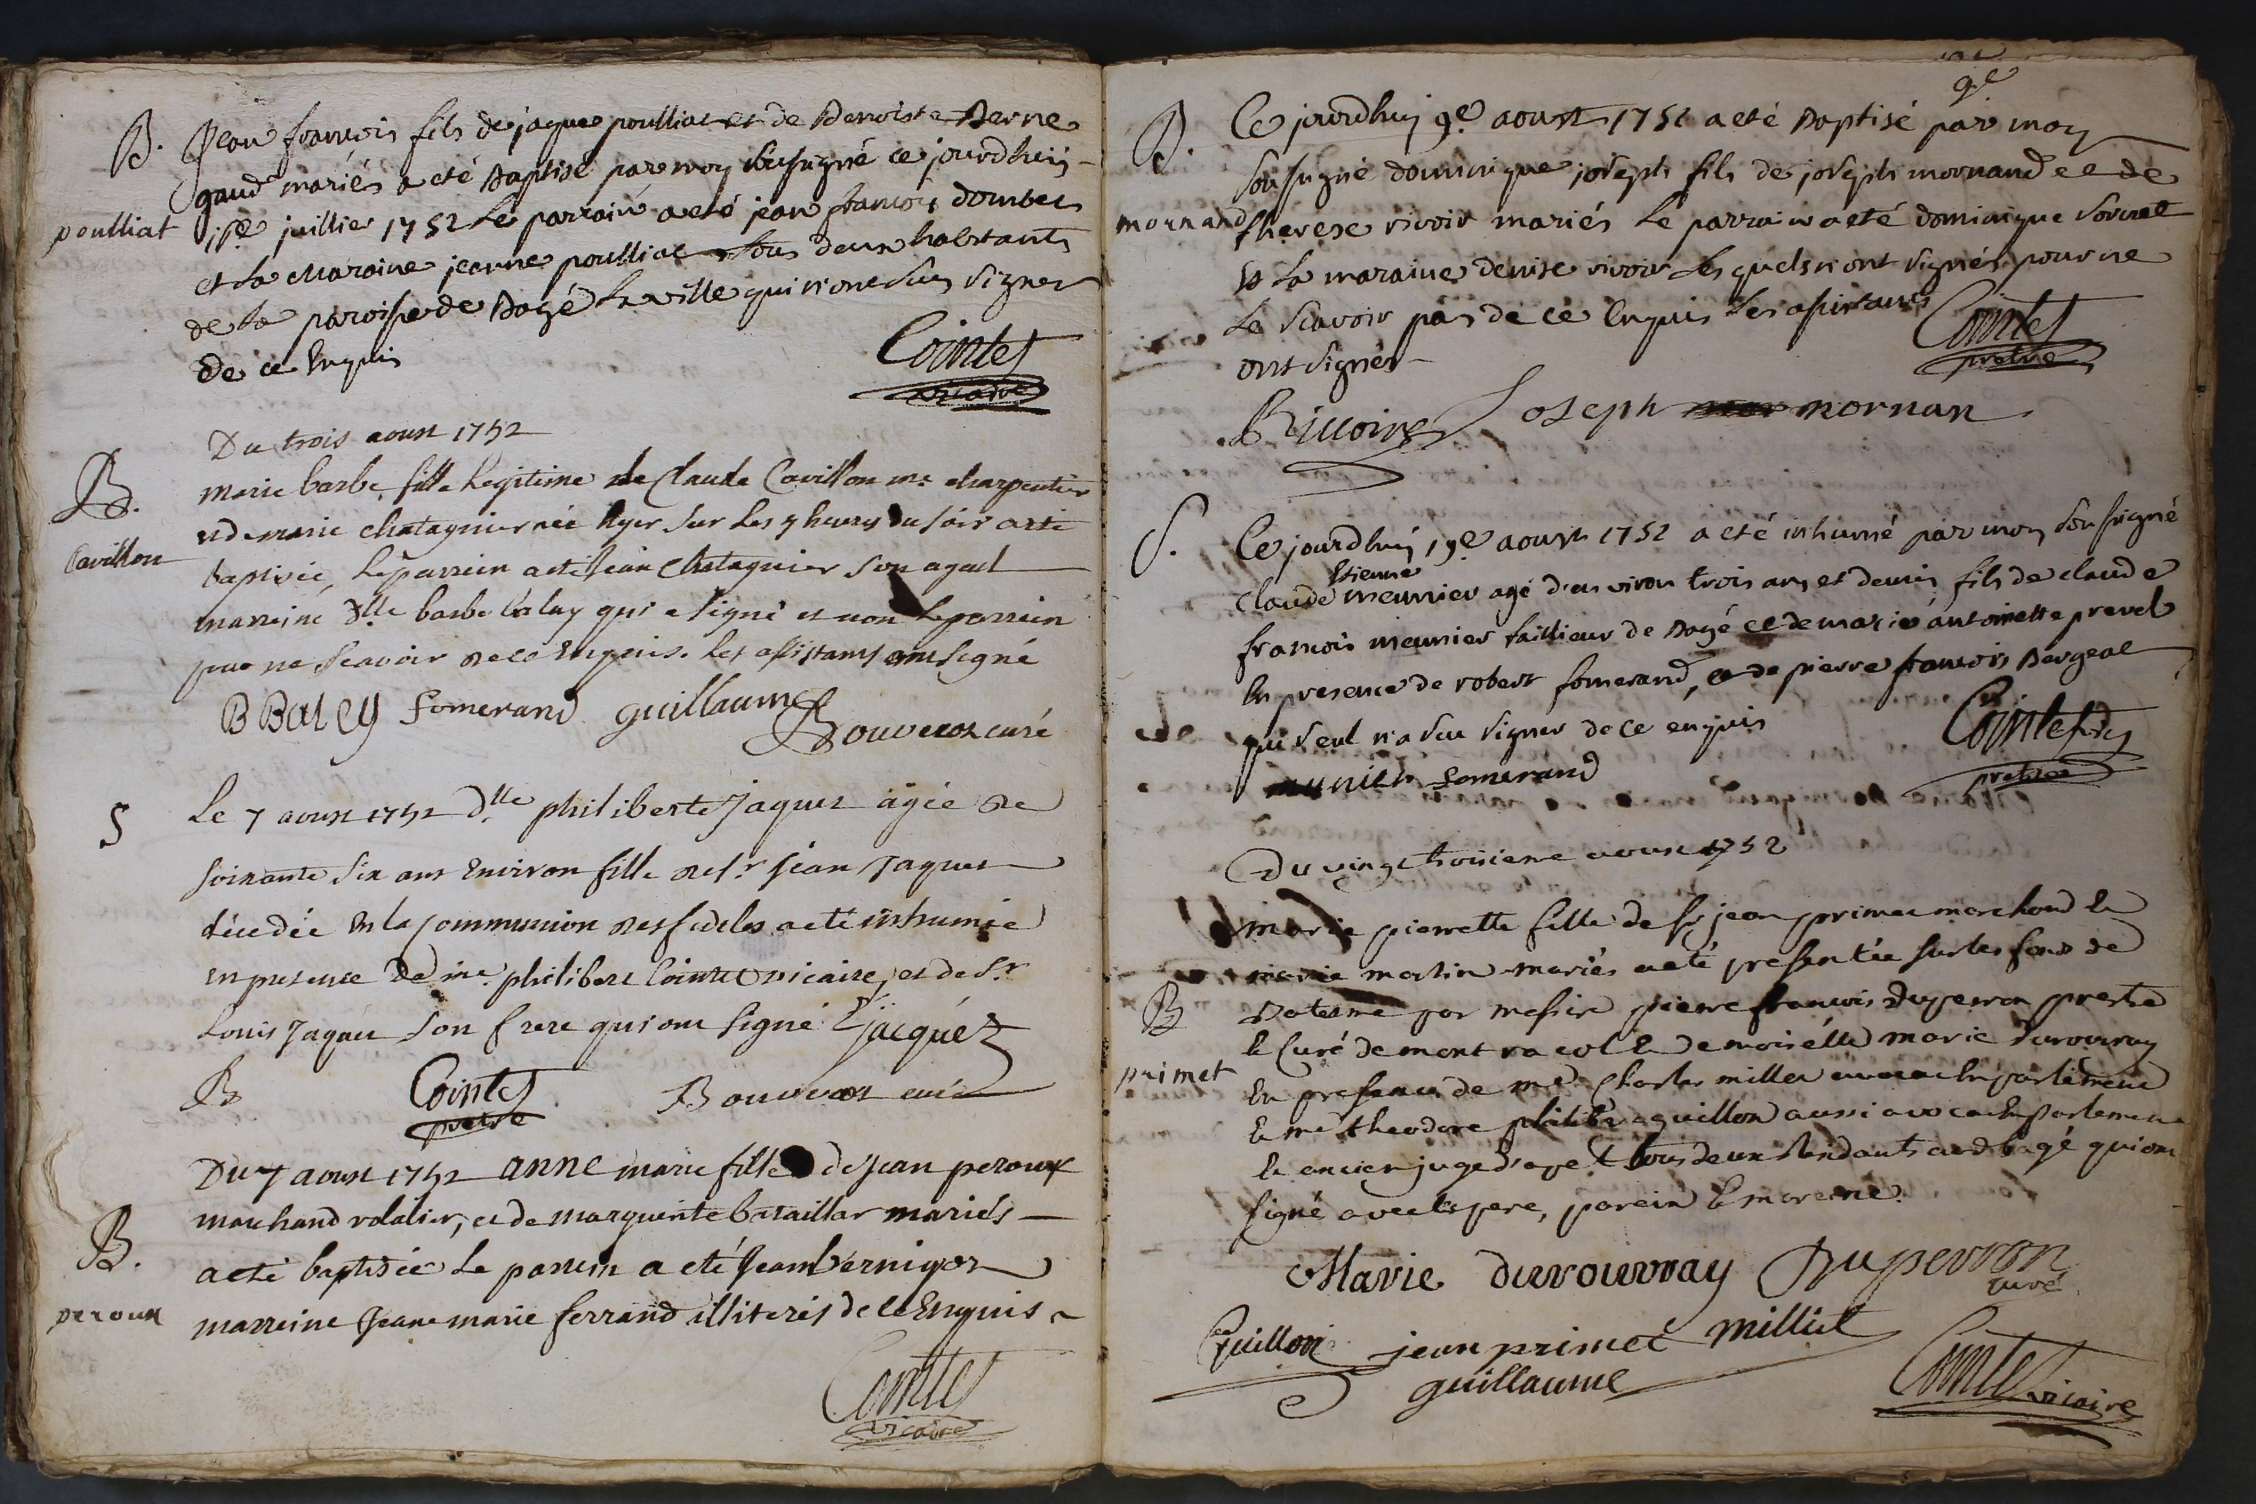 B. Jean francois fils de jaque poulliat et de Benoiste Berne
gaud mariés a eté Baptisé par moy sousigné ce jourdhuij
poulliat juillier 1752 Le parrain a eté jean francois dombes
et La Maraine jeanne poulliat tous deux habitants
de la paroisse de Bagé La ville qui n'ont sceu signer
de ce Enquis
Cointet
vicaire
Du trois aoust 1752
B. marie barbe fille Legitime de Claude Cavillon mr charpentier
et de marie chatagnier née hyer sur Les 9 heures du soir a eté
Cavillon baptisée, Le parrein a eté Jean Chatagnier son ayeul
marreine dlle barbe balay qui a signé et non Le parrein
pour ne scavoir de ce Enquis. Les assistans ont signé
B Baley Somerand guillaume
Bouveron curé
S Le 7 aoust 1752 dlle philiberte Jaquet agée de
soixante six ans Environ fille de sr Jean Jaquet
décedée En la communion des fideles a eté inhumée
en presence de me philibert Cointet vicaire, et de sr
Louis Jaquet son frere qui ont signé Ljacquéz
B Cointet Bouveron curé
pretre
Du 7 aoust 1752 anne marie fille de Jean peroux
marchand volalier, et de marguerite bataillar mariés
B. a eté baptisée le parrein a eté Jean vernigor
peroux marreine Jeane marie ferrand illiterés de ce Enquis
Cointet
vicaire
9e
B. Ce jourdhuij 9e aoust 1752 a eté Baptisé par moy
sousigné dominique joseph fils de joseph mornand et de
mornand therese rivoir mariés Le parrain a eté dominique
Et La maraine denise rivoir Lesquels n'ont signés pour ne
Le scavoir pas de ce Enquis Les assistants
ont signés
Cointet
pretre
Rivoire Joseph mornan
S. Ce jourdhuij 19e aoust 1752 a eté inhumé par moy sousigné
Etienne
Claude meunier agé d'environ trois ans et demis fils de claude
francois meunier taillieur de Bagé et de marie antoinette prevel
En presence de robert somerand, et de pierre francois Bergeat
qui seul n'a sceu signer de ce enquis
Cointet
munier somerand
pretre
Du vingt troisieme aoust 1752
marie pierrette fille de sr jean primet marchand et
marie martin mariés a eté presentée sur les fons de
B Bateme par messire pierre francois Duperron prestre
et Curé de mont racol et demoiselle marie Durouvray
primet En presence de me Charles milliet avocat En parlement
et me theodore philibert guillon aussi avocat En parlement
et encien juge tous deux Residants aud bagé qui ont
signé avec Le pere, parein et mareine.
Marie durouvray Duperron
curé
Guillon jean primet milliet
guillaume
Cointet vicaire